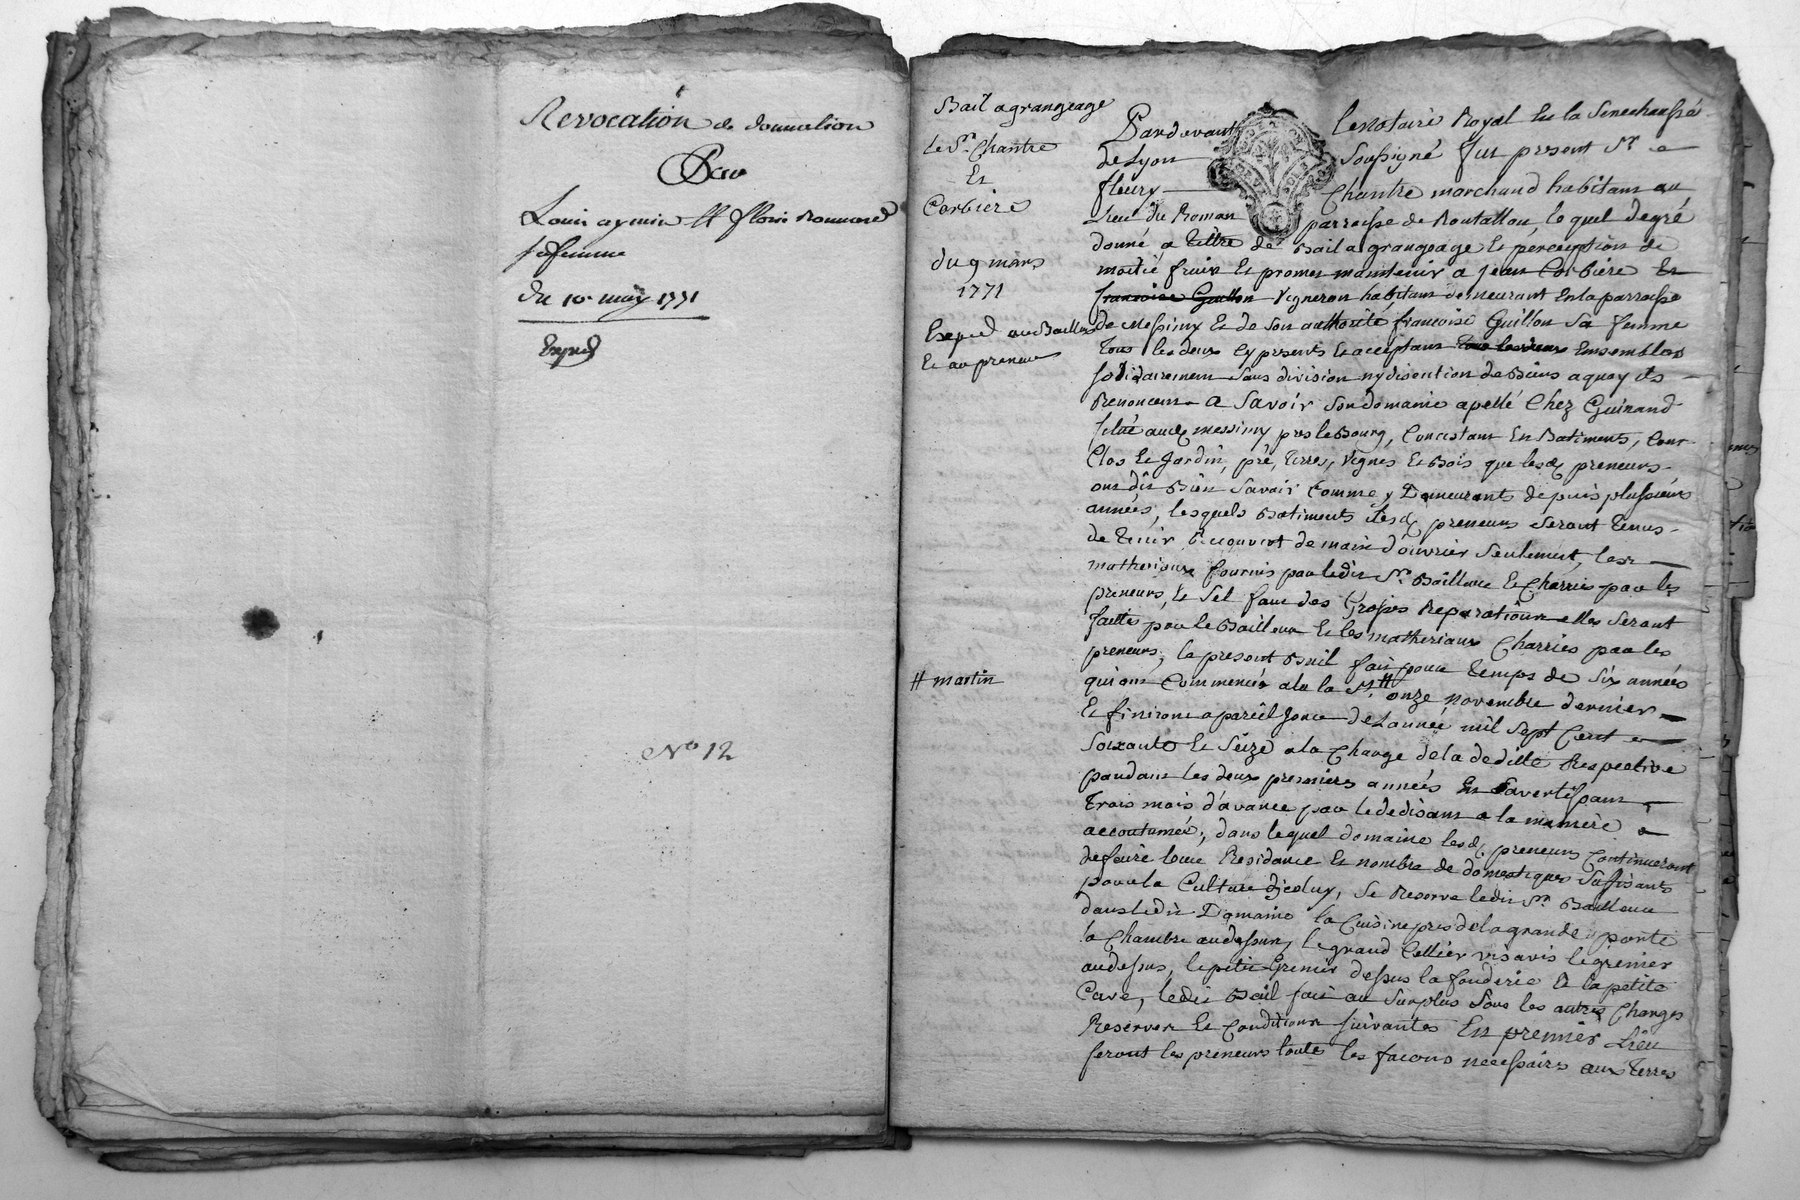 Revocation de donnation
Par
Louis aymin # fleurie
sa femme
Du 10 may 1771
Exped
N° 12
Bail a grangeage
Le Sr. Chantre
Et
Corbiere
du 9 mars
1771
Exped au Bailleur
Et au preneur
# martin
Pardevant Le notaire Royal En la Senechaussé
de Lyon Soussigné fut present Sr
fleury Chantre marchand habitant au
Lieu du Roman parroisse de Rontallon, lequel de gré
donné a tittre de Bail a grangeage Et perception de
moitié fruix Et promet maintenir a jean Corbiere Et
francoise Guillon Vigneron habitant demeurant En la parroisse
de Messimy Et de son authorité francoise Guillon Sa femme
tous les deux Cy presents Et acceptant tous les deux Ensembles
solidairement sans division ny discution de Biens a quoy ils
Renoncent a Savoir Son domaine apellé Chez Guinand
situé audt messimy pres le Bourg, Concistant En Batiments, Cour
Clos Et Jardin, pré, terres, Vignes Et Bois que lesd. preneurs
ont dit Bien Savoir Comme y Demeurants depuis plussieurs
années, lesquels Batiments lesd. preneurs seront tenus
de tenir Recouvert de main d'ouvrier Seulement, les
matheriaux fournis par ledit Sr. Bailleur Et Charriés par les
preneurs, Et s'il faut des Grosses Reparations elles seront
faitte par le Bailleur Et les matheriaux Charriés par les
preneurs, le present Bail fait pour temps de Six années
qui ont Commencés a la St. # onze novembre dernier
Et finiront a pareil Jour de L'année mil Sept Cent
Soixante Et Seize a la Charge de la deditte Respective
pandant les deux premieres années En S'avertissant
trois mois d'avance par le dedisant a la maniere
accoutumée, dans lequel domaine lesd. preneurs Continueront
de faire leur Residance Et nombre de domestiques Suffisants
pour la Culture d'jceluy, Se Reserve ledit Sr. Bailleur
dans ledit Domaine la Cuisine pres de la grande porte
la Chambre au dessus, le grand Cellier vis avis le grenier
au dessus, le petit Grenier dessus la fouderie Et la petite
Cave, ledit Bail fait au Surplus Sous les autres Charges
Reserves Et Conditions Suivantes En premier Lieu
feront les preneurs toutes les facons necessaires aux terres